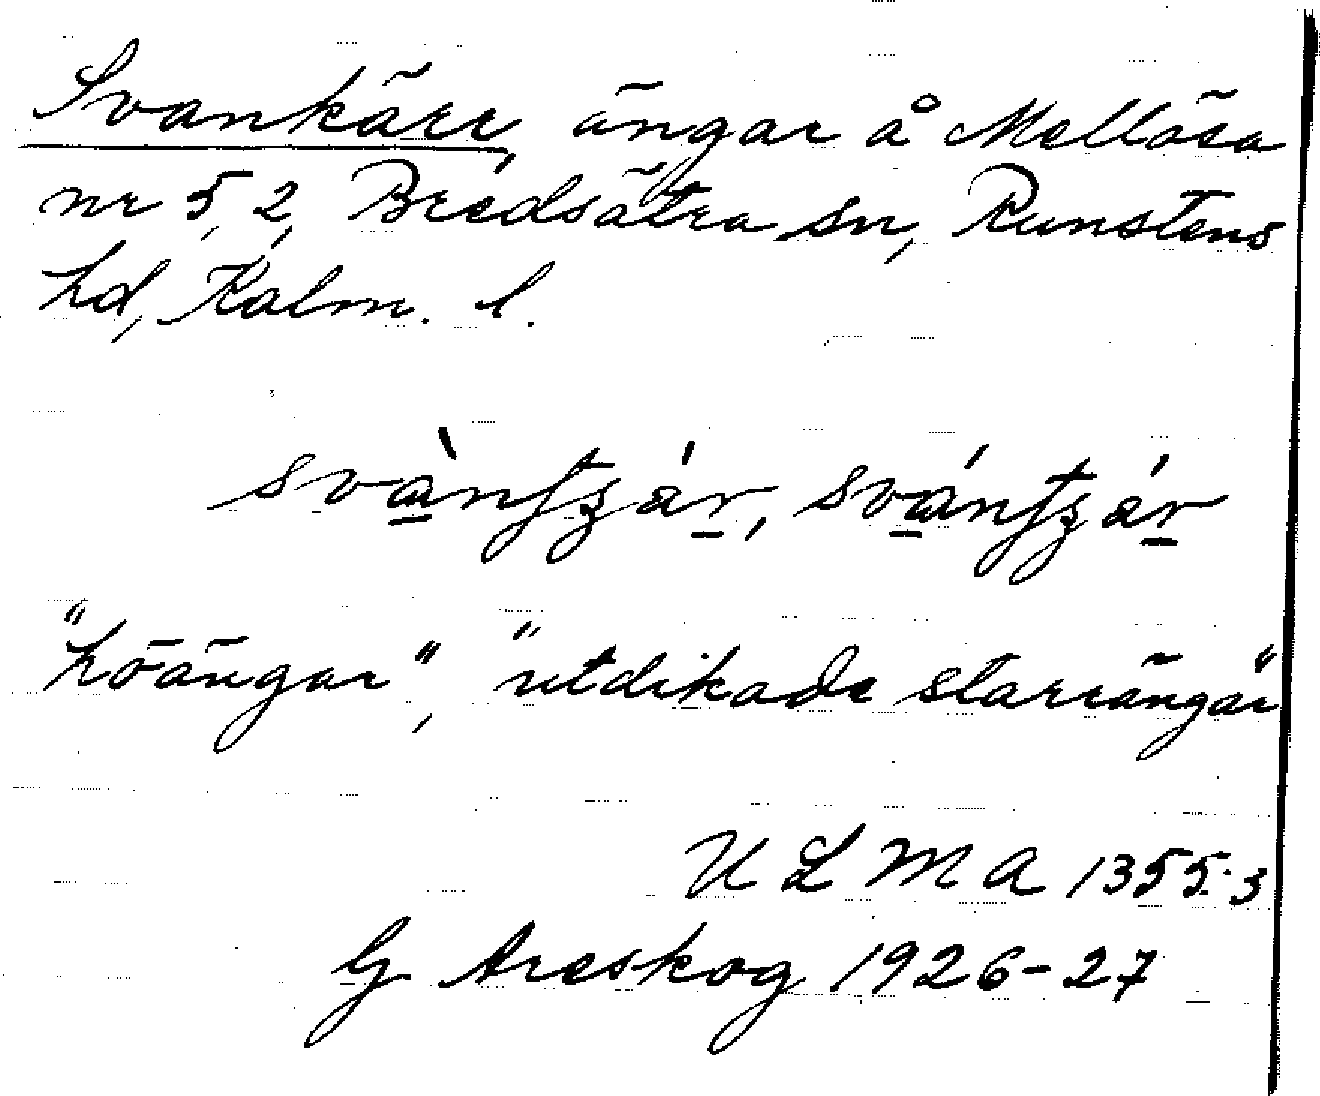 Svankärr, ängar å Mellösa
nr 5, 2, Bredsätra sn, Runstens
hd, Kalm. l.
"höängar", "utdikade starrängar"
U L M A 1355:3
G Areskog 1926-27